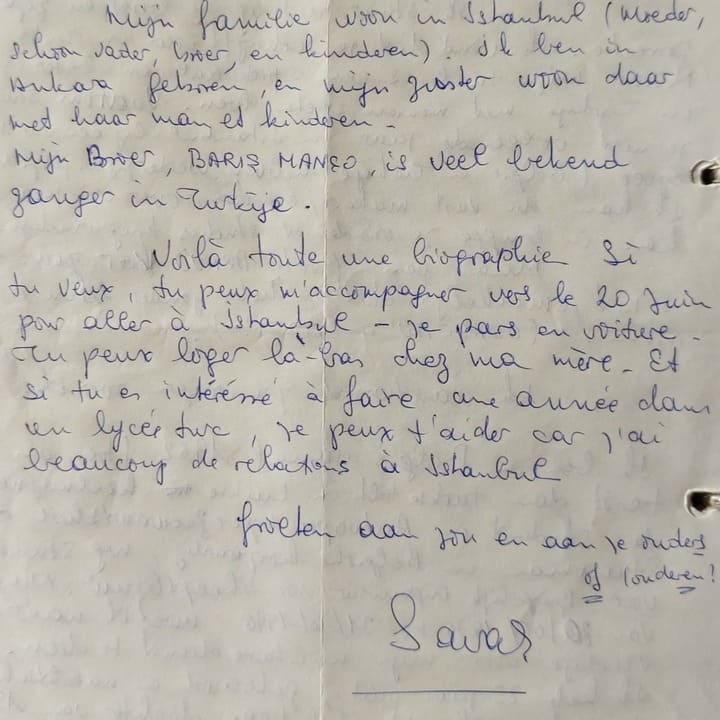 Mijn familie woon in Istanbul (Moeder,
schoon vader, broer, en kinderen). Ik ben in
Ankara geboren, en mijn zuster woon daar
met haar man et kinderen.
Mijn Broer, BARIŞ MANÇO, is veel bekend
zanger in Turkije.
Voilà toute une biographie Si
tu veux, tu peux m'accompagner vers le 20 Juin
pour aller à Istanbul - je pars en voiture.
Tu peux loger là-bas chez ma mère. Et
si tu es intéréssé à faire une année dans
un lycée turc, je peux t'aider car j'ai
beaucoup de relations à Istanbul
Groeten aan jou en aan je ouders
of (ouderen?
Savaş